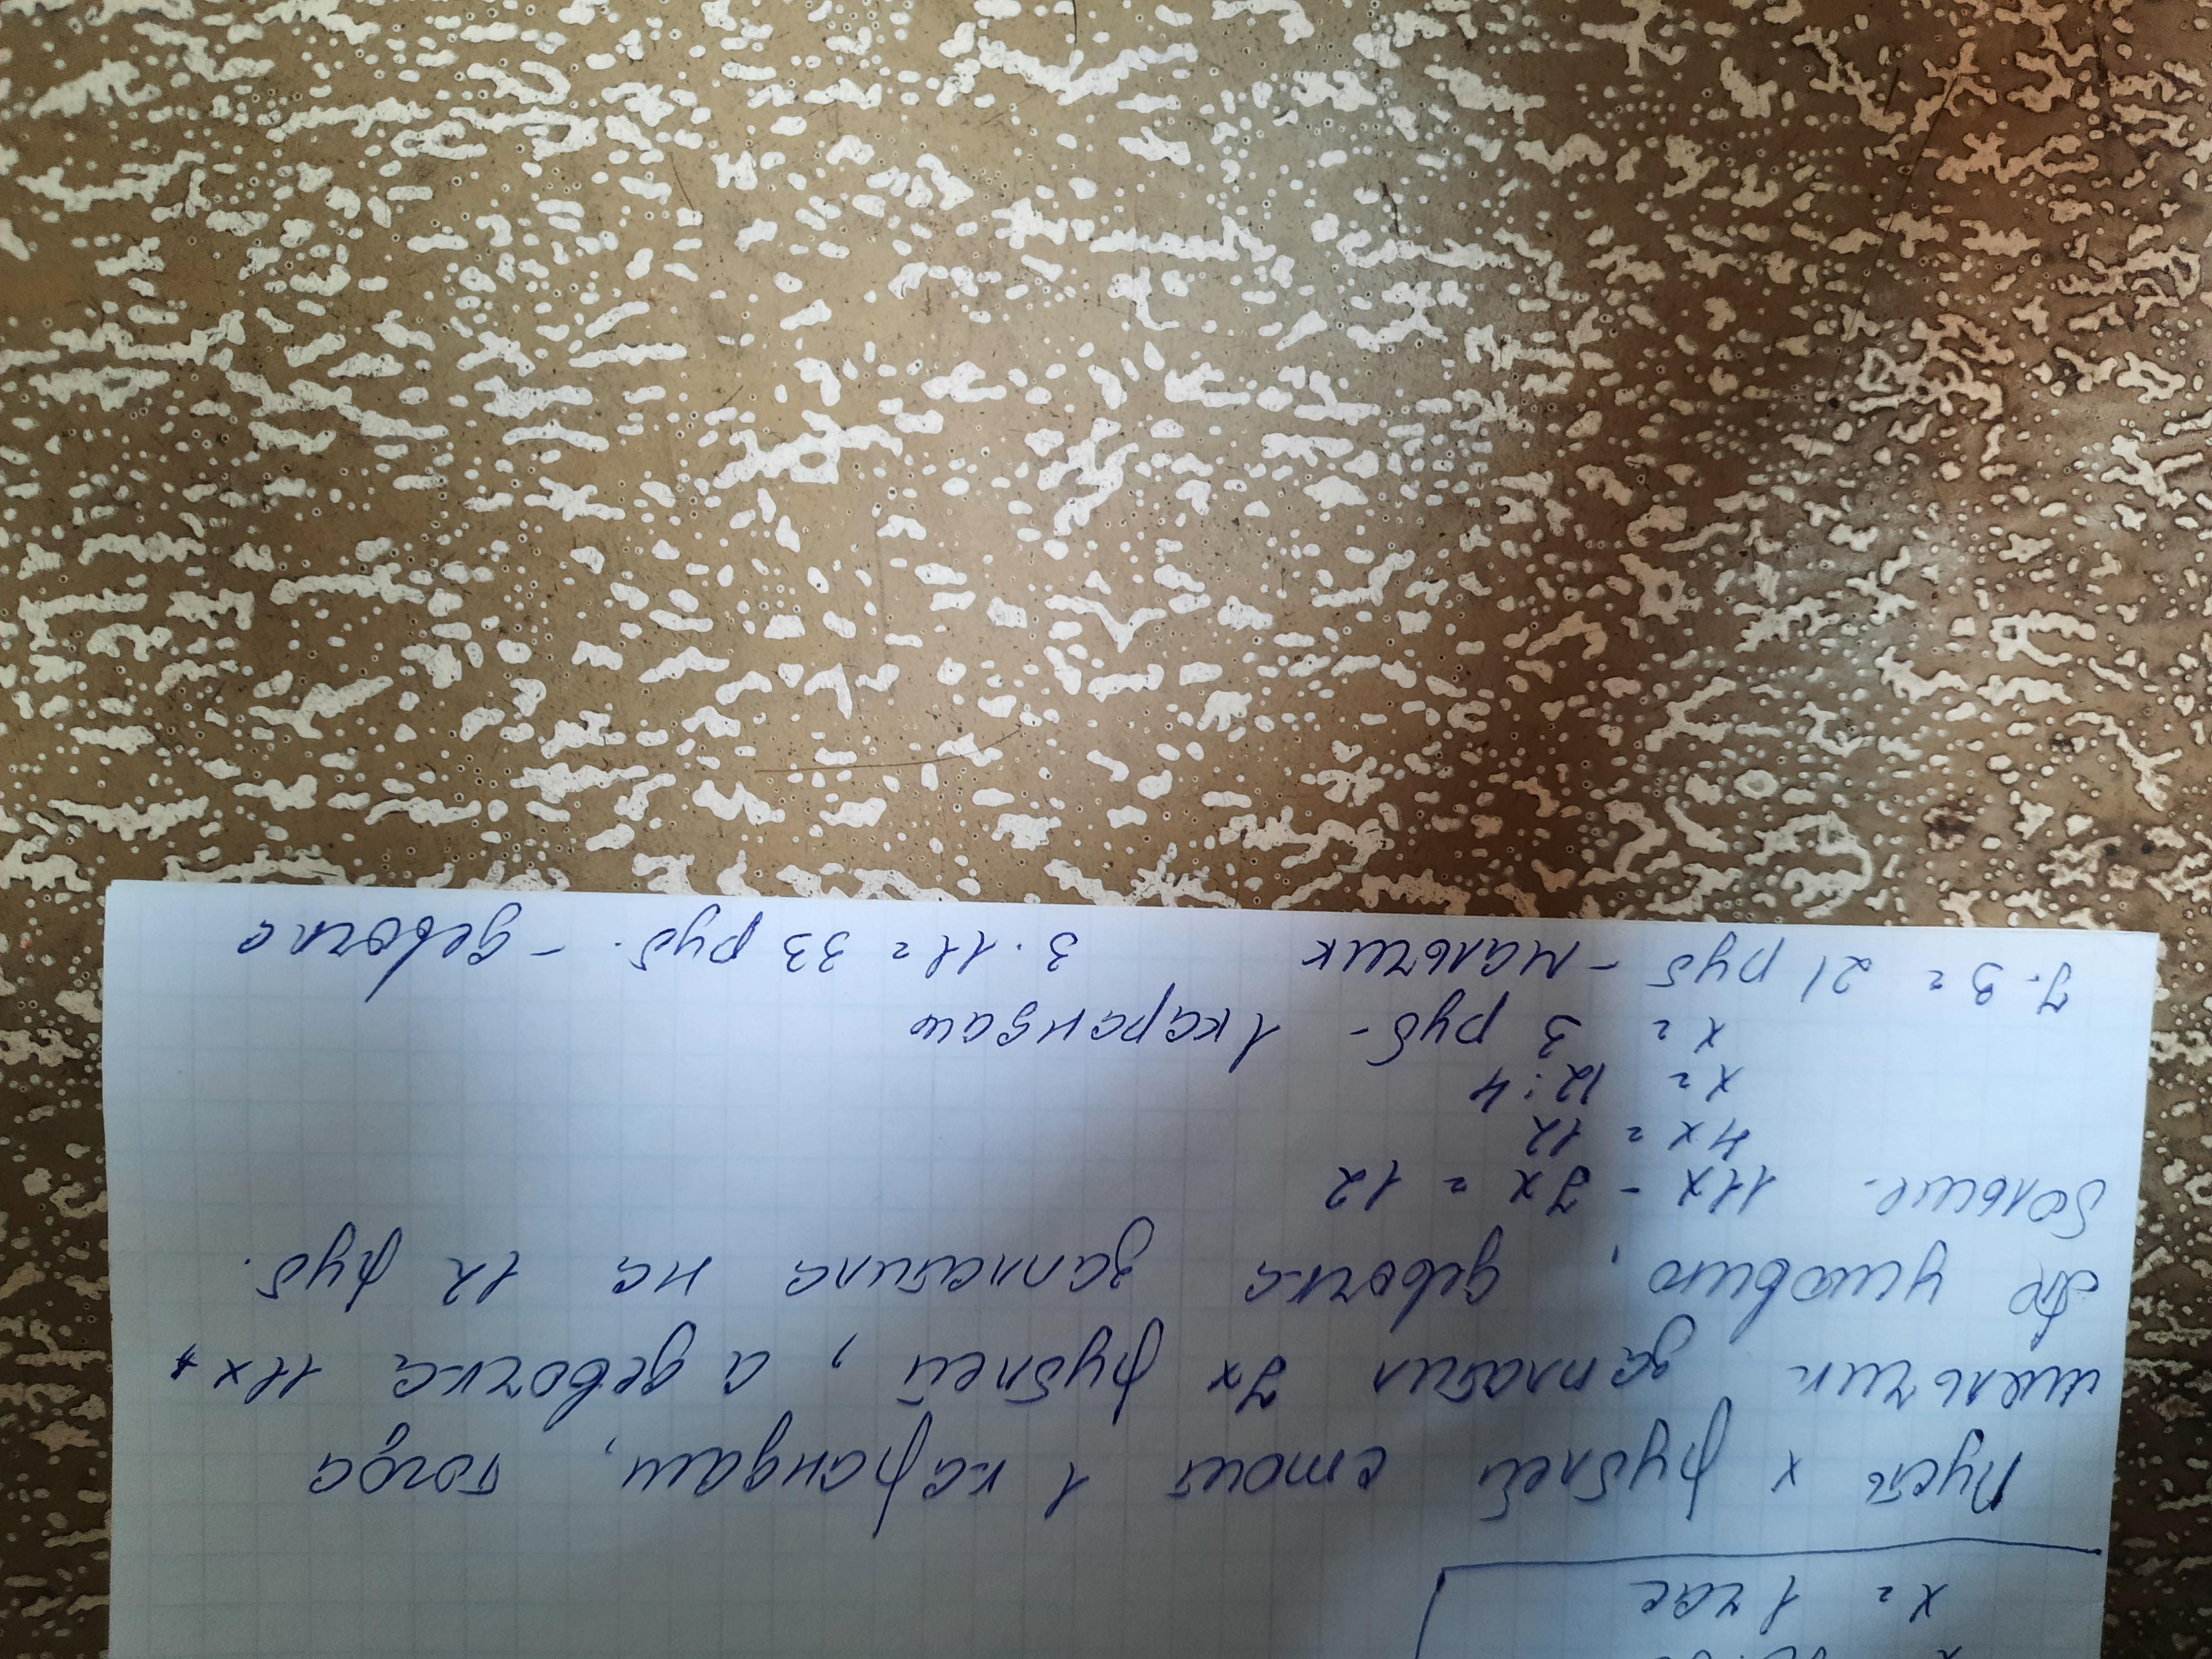 x = 1 час
Пусть x рублей стоит 1 карандаш, тогда
мальчик заплатил 7x рублей, а девочка 11x
По условию, девочка заплатила на 12 руб.
больше. 11x - 7x = 12
4x = 12
x = 12:4
x = 3 руб - 1 карандаш
7·3 = 21 руб - мальчик 3·11 = 33 руб. - девочка